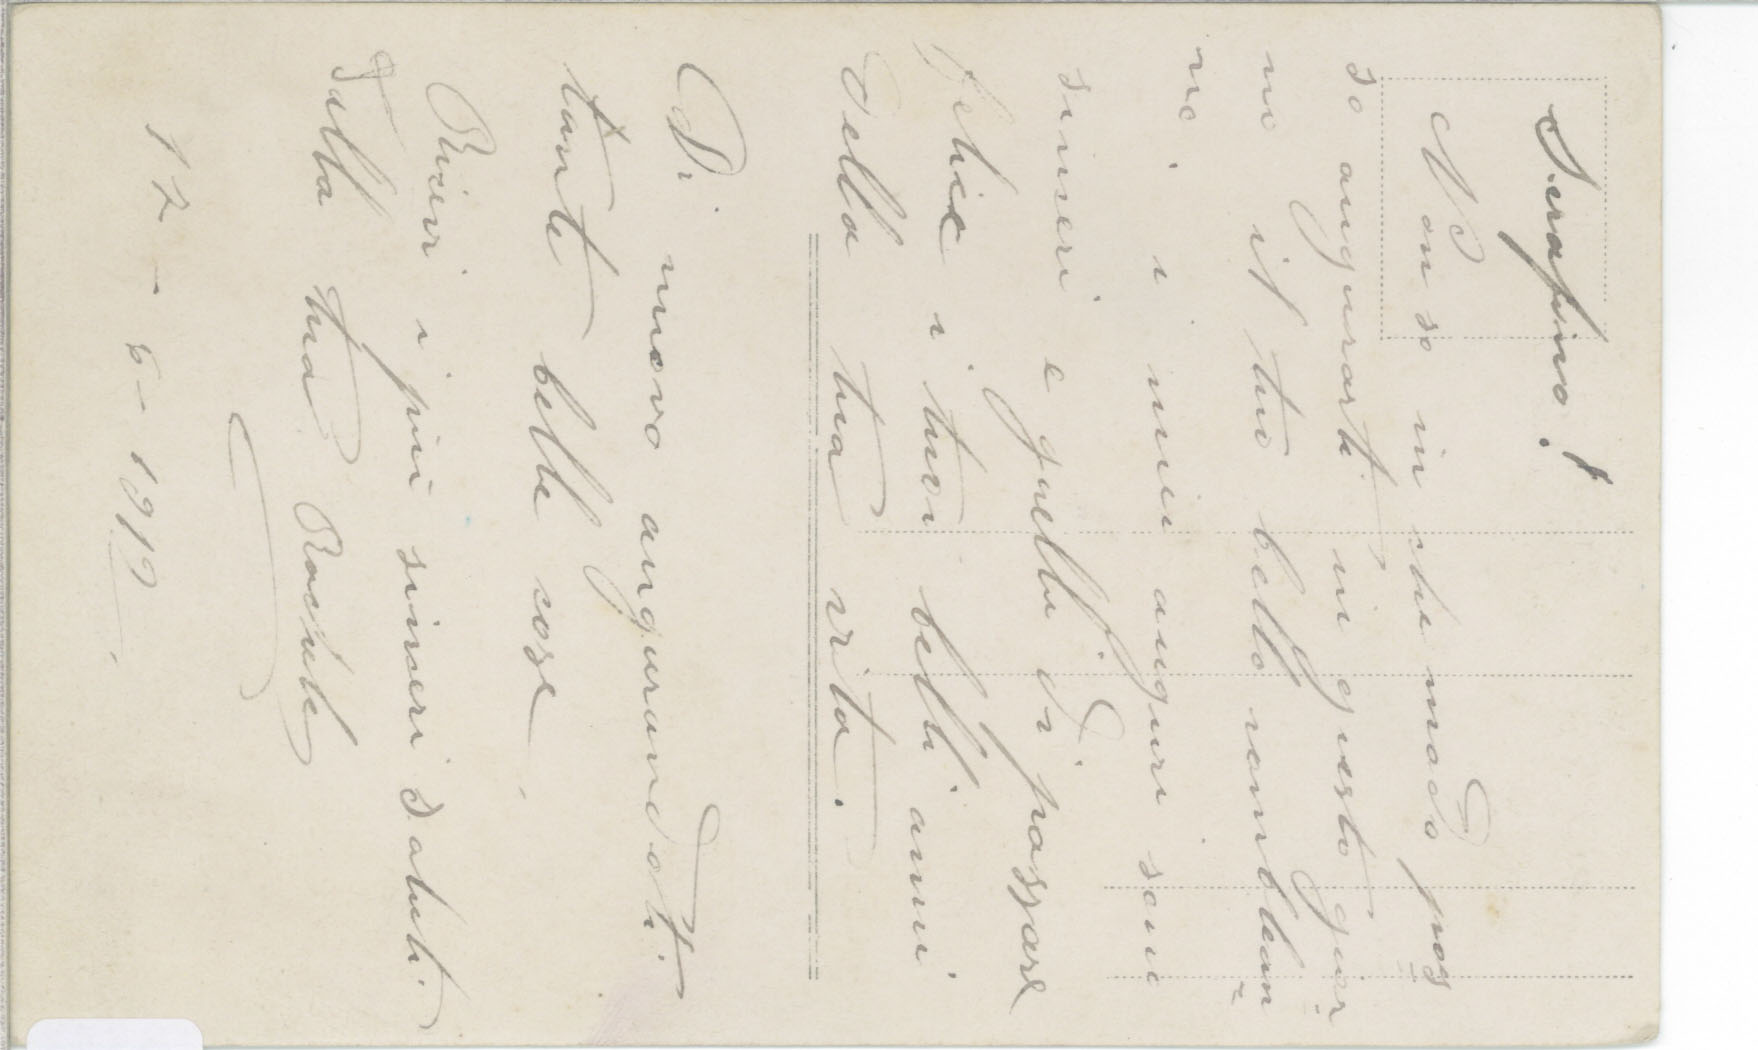 Serafino!
Non so in che modo pos
so augurarti in questo gior
no il tuo bello comblean
no i miei auguri sono
sinceri e quelli di passare
felice i tuoi belli anni
della tua vita.
Di nuovo augurandoti
tante belle cose
Ricevi i più sinceri saluti.
dalla tua
12-6-1919